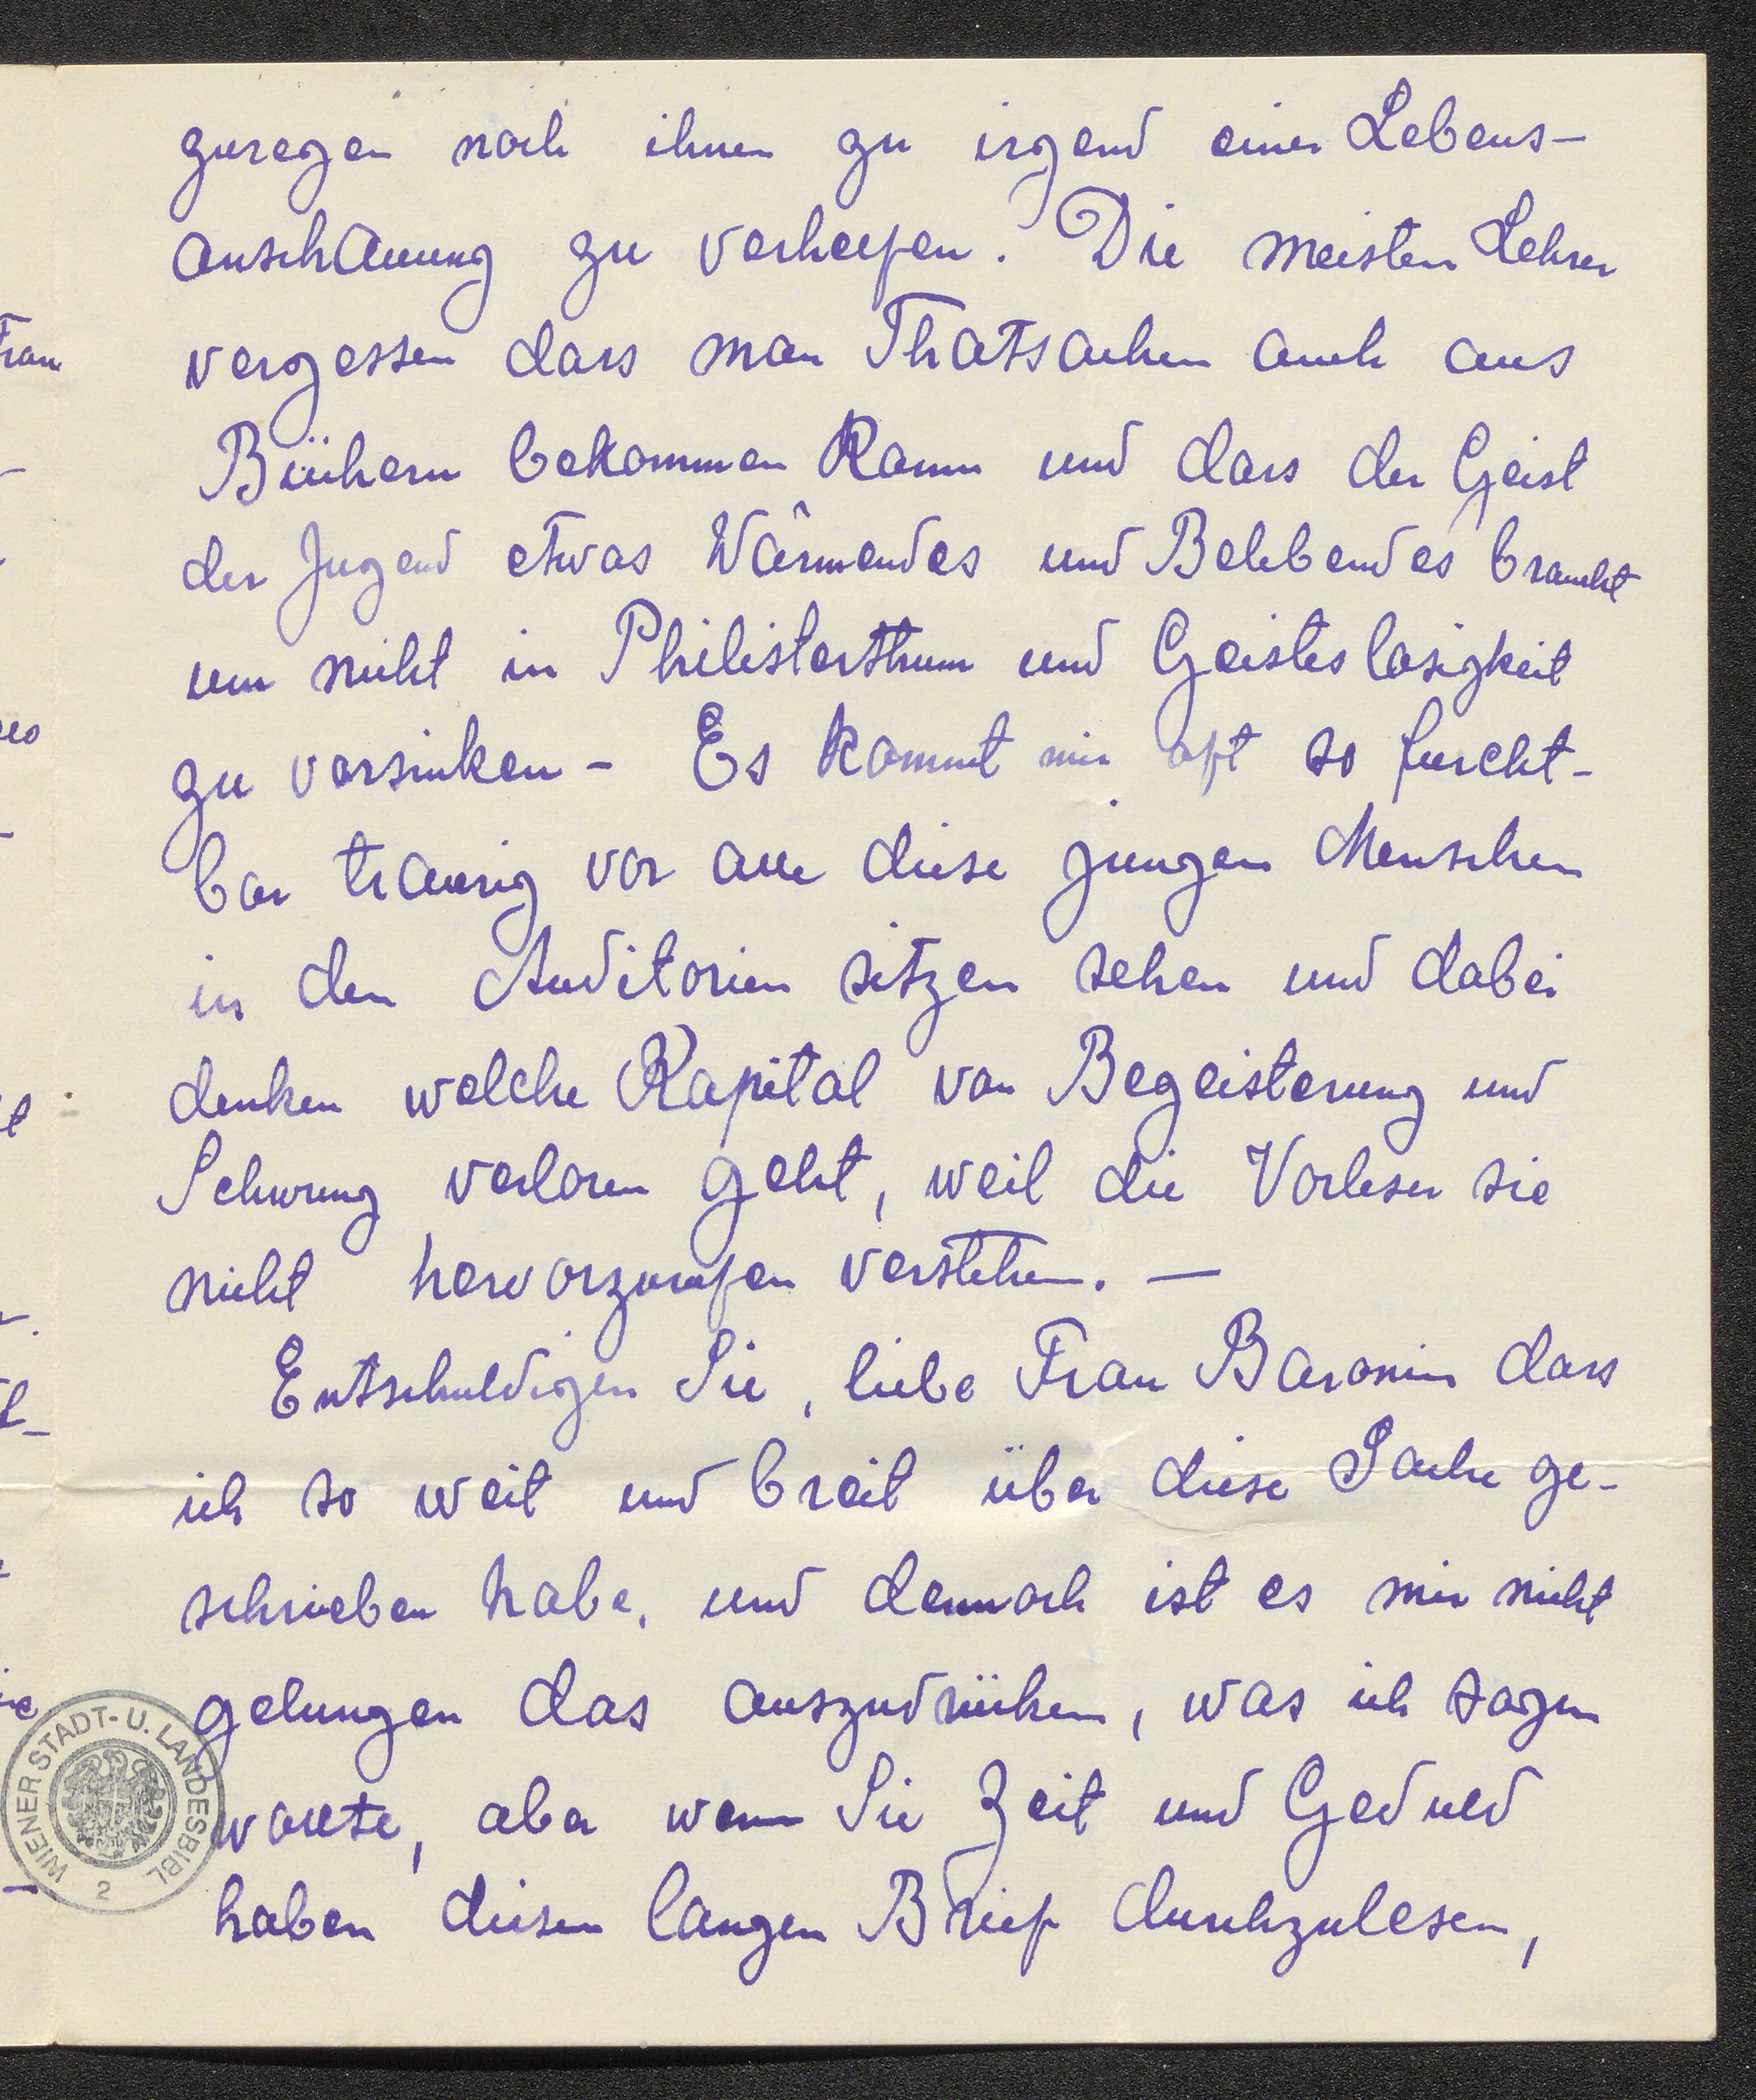 zuregen noch ihnen zu irgend einer Lebens-
anschauung zu verhelfen. Die meisten Lehrer
vergessen dass man Thatsachen auch aus
Büchern bekommen kann und dass der Geist
der Jugend etwas Wärmendes und Belebendes braucht
um nicht in Philisterthum und Geisteslosigkeit
zu versinken - Es kommt mir oft so furcht-
bar traurig vor alle diese jungen Menschen
in den Auditorien sitzen sehen und dabei
denken welche Kapital von Begeisterung und
Schwung verloren geht, weil die Vorleser sie
nicht hervorzurufen verstehen. —
Entschuldigen Sie, liebe Frau Baronin dass
ich so weit und breit über diese Sache ge-
schrieben habe, und dennoch ist es mir nicht
gelungen das auszudrücken, was ich sagen
wollte, aber wenn Sie Zeit und Geduld
haben diesen langen Brief durchzulesen,
WIENER STADT- U. LANDESBIBL
2
Frau